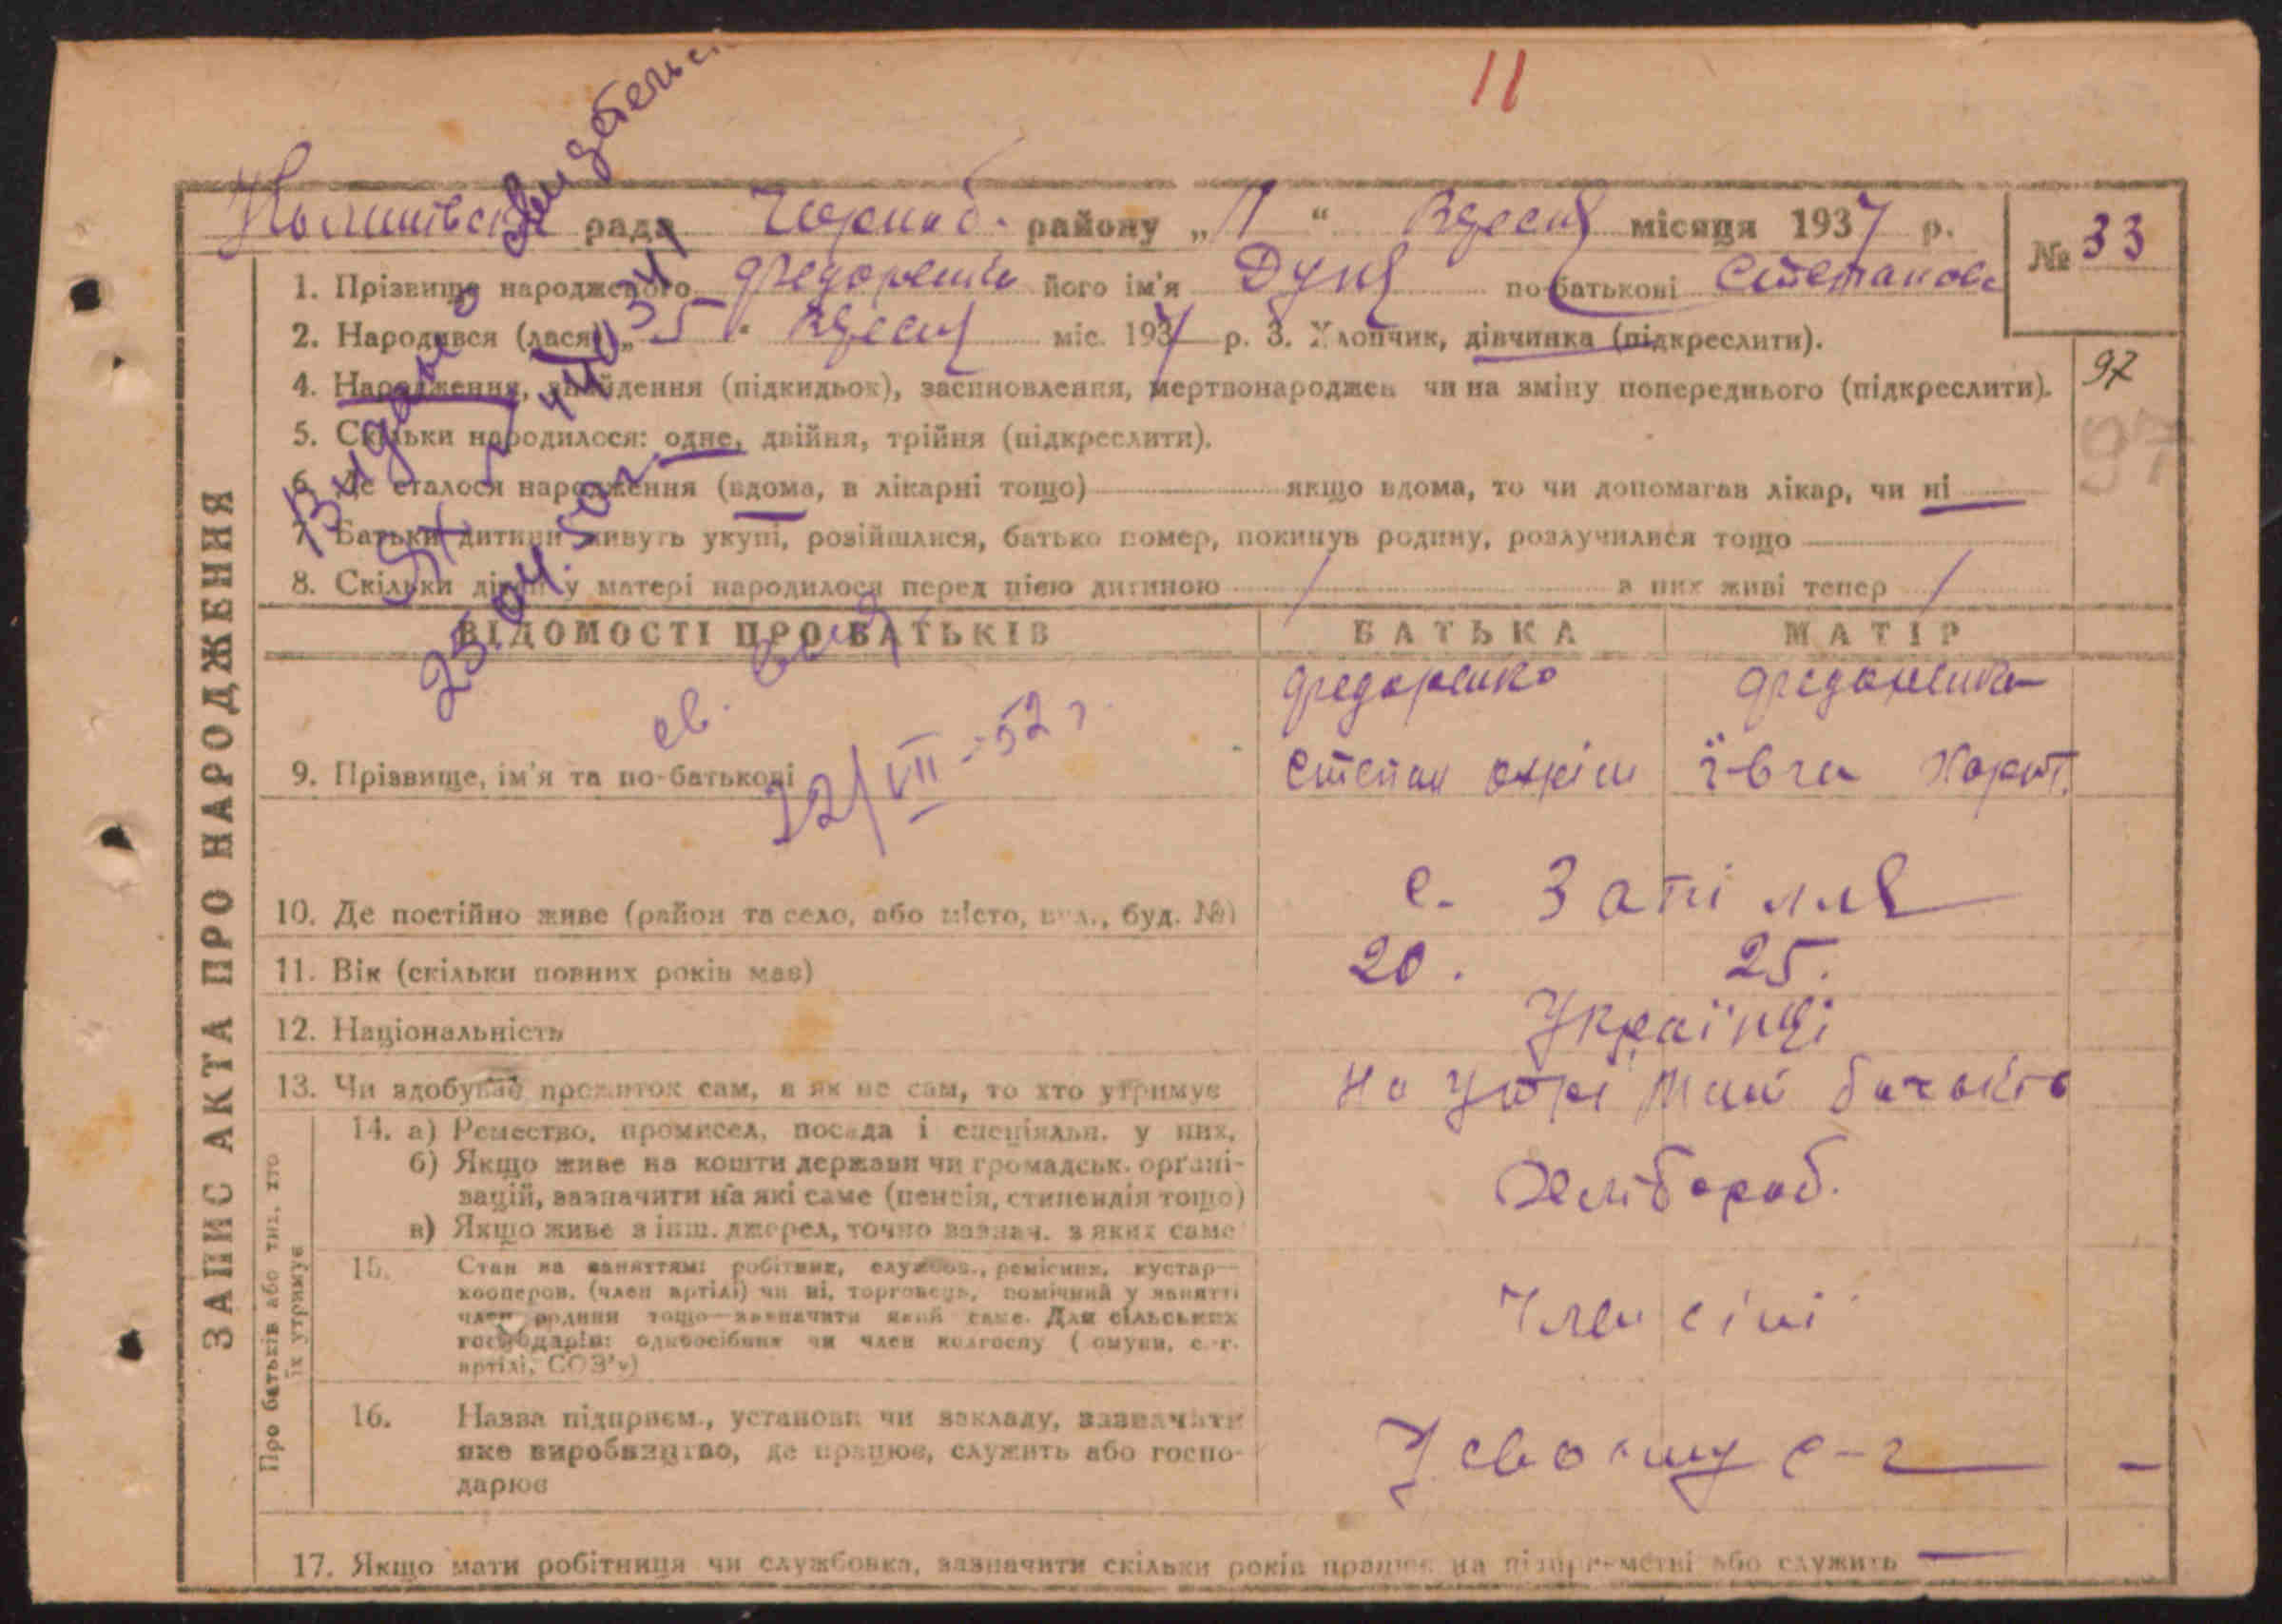 11
рада Чорноб. району „11“ Вересня місяця 1937 р.
№ 33
1. Прізвище народженого Федоренко його ім'я Дуня по-батькові Степанова
2. Народився (лася) „5“ Вересня міс. 1937 р. 3. Хлопчик, дівчинка (підкреслити).
4. Народження, знайдення (підкидьок), засиновлення, мертвонароджен чи на зміну попереднього (підкреслити).
97
97
5. Скільки народилося: одне, двійня, трійня (підкреслити).
6. Де сталося народження (вдома, в лікарні тощо) якщо вдома, то чи допомагав лікар, чи ні
7. Батьки дитини живуть укупі, розійшлися, батько помер, покинув родину, розлучилися тощо
8. Скільки дітей у матері народилося перед цією дитиною / з них живі тепер /
Видано Свидетельс
25.04.50 г.
22/VII-52 г.
ЗАПИС АКТА ПРО НАРОДЖЕННЯ
ВІДОМОСТІ ПРО БАТЬКІВ БАТЬКА МАТІР
Федоренко Федоренко
9. Прізвище, ім'я та по-батькові Степан Івга
10. Де постійно живе (район та село, або місто, вул., буд. №) с. Запілля
11. Вік (скільки повних років має) 20. 25.
12. Національність Українці
13. Чи здобуває прожиток сам, а як не сам, то хто утримує На утрі
Про батьків або тих, хто їх утримує
14. а) Ремество, промисел, посада і спеціяльн. у них,
б) Якщо живе на кошти держави чи громадськ. органі-
зацій, зазначити на які саме (пенсія, стипендія тощо) Хлібороб.
в) Якщо живе з інш. джерел, точно зазнач. з яких саме
15. Стан на заняттям: робітник, службов., ремісник, кустар—
кооперов. (член артілі) чи ні, торговець, помічний у занятті
член родини тощо—зазначити який саме. Для сільських Член сімї
господарів: одноосібник чи член колгоспу (комуни, с.-г.
артілі, СОЗ'у)
16. Назва підприєм., установи чи закладу, зазначити
яке виробництво, де працює, служить або госпо- У своєму с-г —
дарює
17. Якщо мати робітниця чи службовка, зазначити скільки років працює на підприємстві або служить —